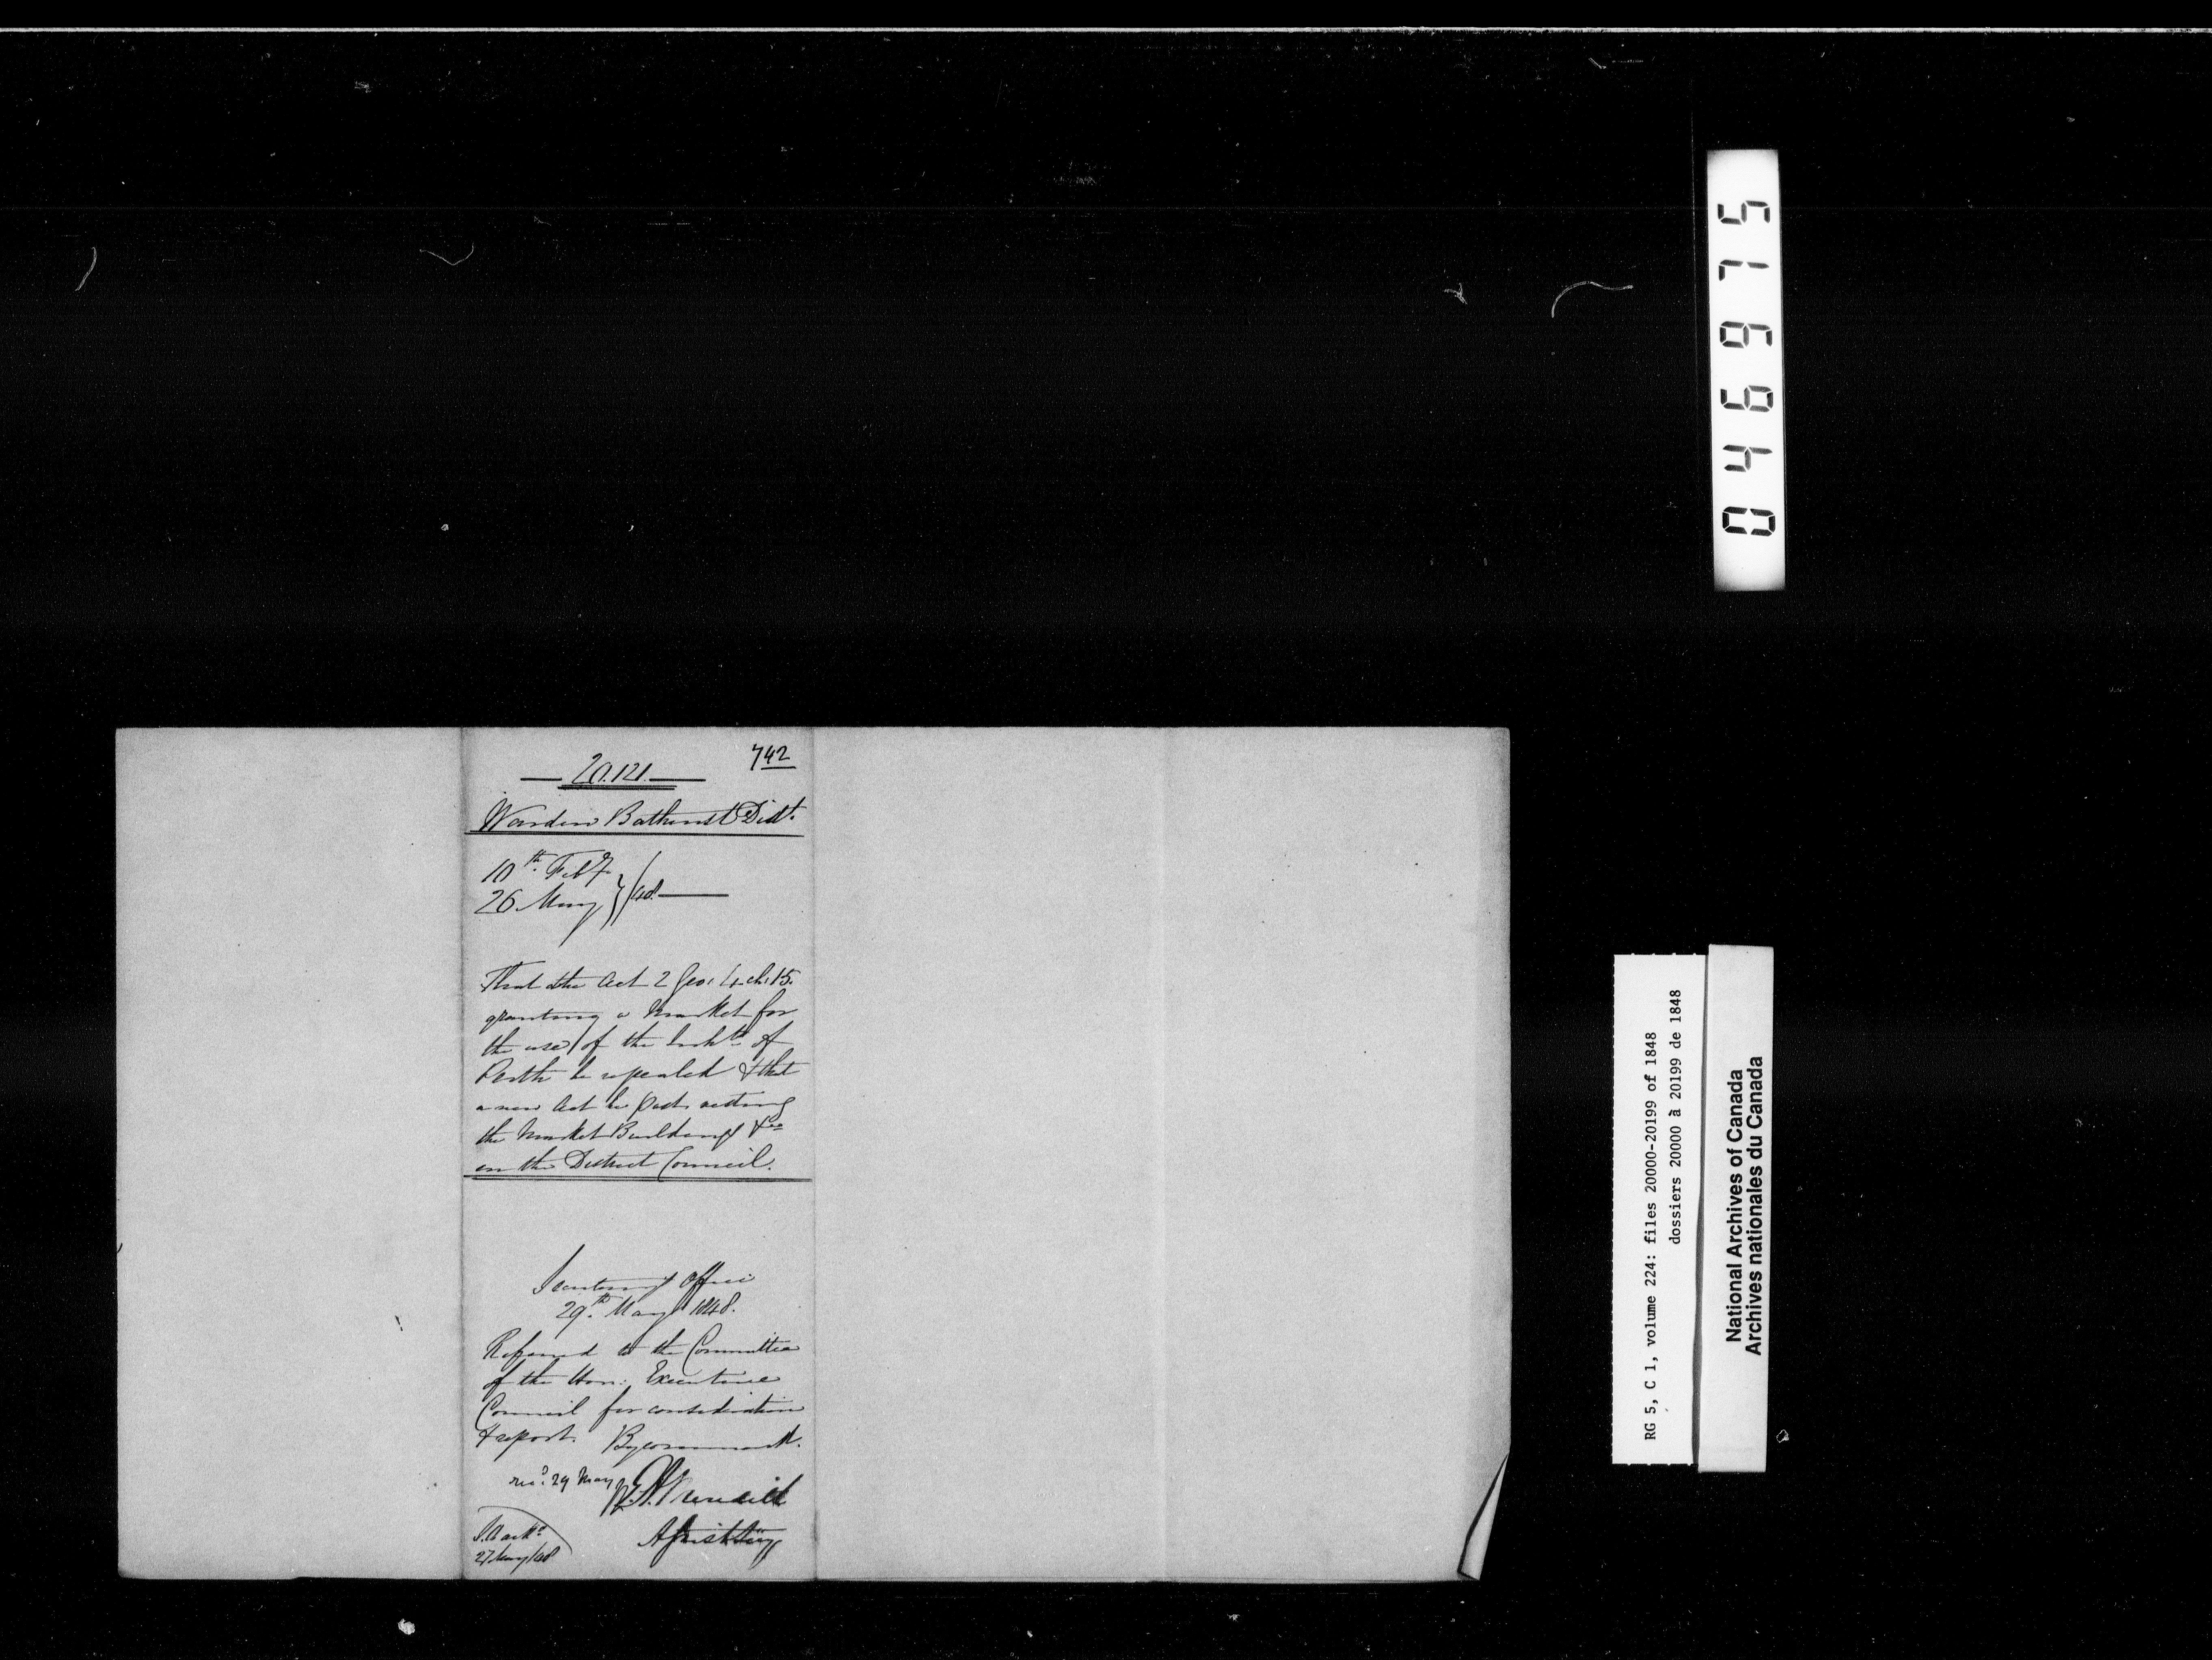 742
20.121.
Warden Bathurst Dist.
10th Feby
26 May } /48.
That the Act 2 Geo: 4. ch: 15.
granting a Market for
the use of the Inhts of
Perth be repealed & that
a new Act be past vesting
the Market Buildings &ca
in the District Council.
Secretary's Office
29th May 1848.
Referred to the Committee
of the Hon: Executive
Council for consideration
& report. By command.
rec'd 29 May
Asst Secy
27 May/48
046975
RG 5, C 1, volume 224: files 20000-20199 of 1848
dossiers 20000 à 20199 de 1848
National Archives of Canada
Archives nationales du Canada